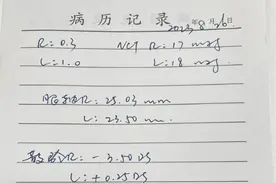 病历记录
2023年8月26日.
R: 0.3 NCT R: 17 mmHg
L: 1.0 L: 18 mmHg
眼轴R: 25.03 mm
L: 23.50 mm
散验R: -3.50DS
L: +0.25DS